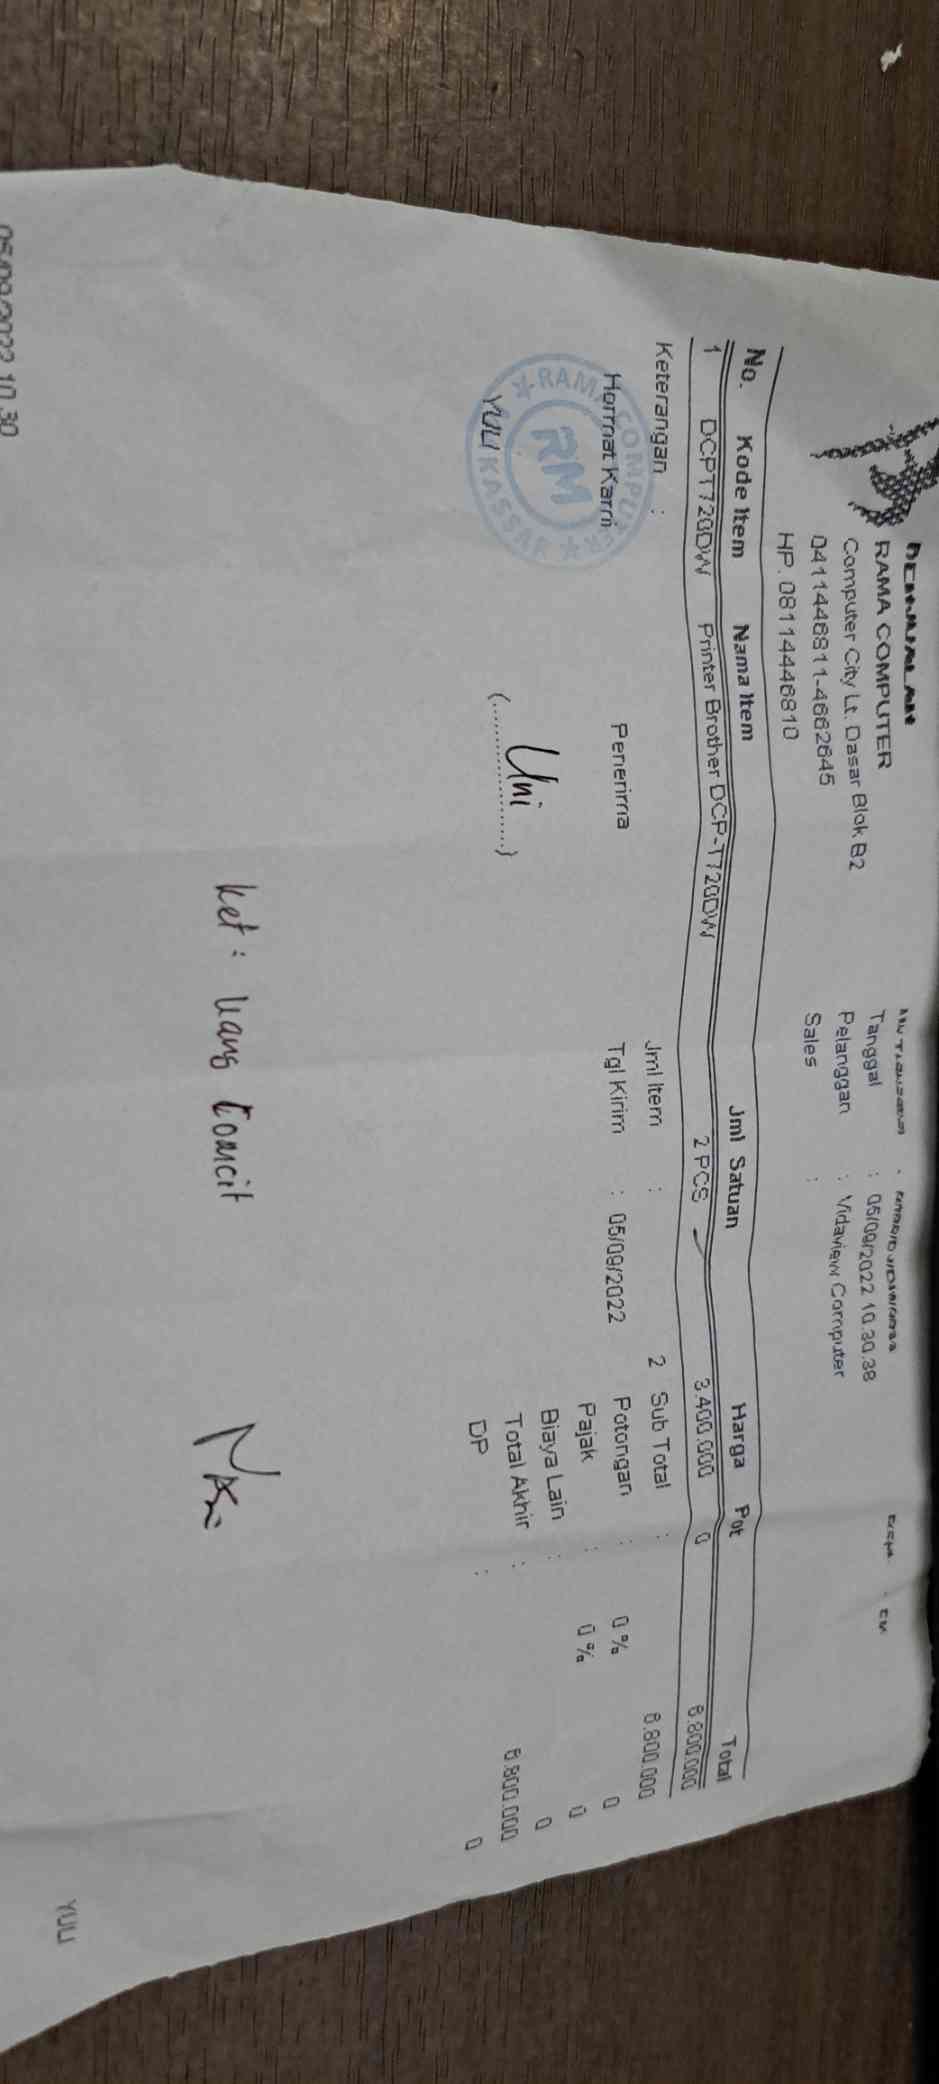 PENJUALAN
RAMA COMPUTER
Computer City Lt. Dasar Blok B2
0411446811-4662645
HP. 08114446810
Tanggal : 05/09/2022 10.30.38
Pelanggan : Vidaview Computer
Sales :
No. Kode Item Nama Item Jml Satuan Harga Pot Total
1 DCPT720DW Printer Brother DCP-T720DW 2 PCS 3.400.000 0 6.800.000
Keterangan : Jml Item : 2 Sub Total : 6.800.000
Hormat Kami Penerima Tgl Kirim : 05/09/2022 Potongan : 0 % 0
Pajak : 0 % 0
Biaya Lain : 0
Total Akhir : 6.800.000
DP : 0
RAMA COMPUTER
RM
YULI (Uni)
ket : Uang
05/09/2022 10.30
YULI